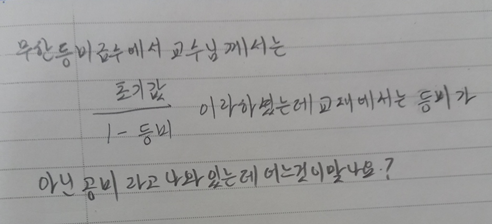 무한등비급수에서 교수님께서는
초기값
1 - 등비
이라하셨는데 교재에서는 등비가
아닌 공비 라고 나와 있는데 어느것이 맞나요?